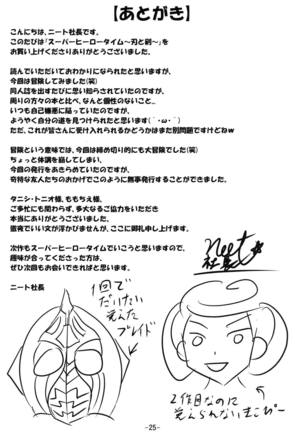 【あとがき】
こんにちは、ニート社長です。
このたびは『スーパーヒーロータイム～刃と剣～』を
お買い上げくださりありがとうございました。
読んでいただいておわかりになられたと思いますが、
今回は冒険してみました(笑)
同人誌を出すたびに思い知らされていたのですが、
周りの方々の本と比べ、なんと個性のないこと…
いつも自己嫌悪に陥っていたのですが、
ようやく自分の道を見つけられたと思います(｀・ω・´)
ただ、これが皆さんに受け入れられるかどうかはまた別問題ですけどねw
冒険という意味では、今回は締め切り的にも大冒険でした(笑)
ちょっと体調を崩してしまい、
今回の発行をあきらめていたのですが、
奇特な友人たちのおかげでこのように無事発行することができました。
タニシ・トニオ様、ももちえ様、
ご多忙にも関わらず、多大なるご協力をいただき
本当にありがとうございました。
直夜でいい文が浮かびませんが、ここに御礼申し上げます。
次作もスーパーヒーロータイムでいこうと思いますので、
趣味が合ってくださった方は、
ぜひ次回もお会いできればと思います。
ニート社長
neet
社長
1回で
だいたい
覚えた
ブレイド
2作目なのに
覚えられないまこぴー
-25-